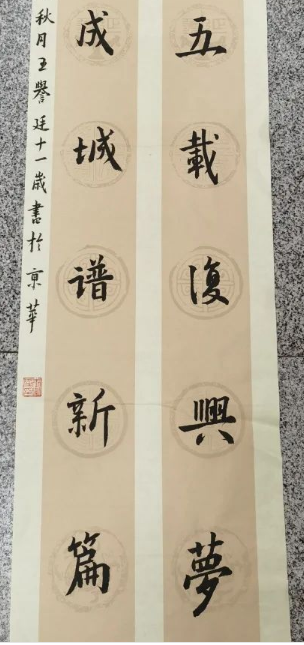 五載復興夢
成城譜新篇
秋月王譽廷十一歲書於京華